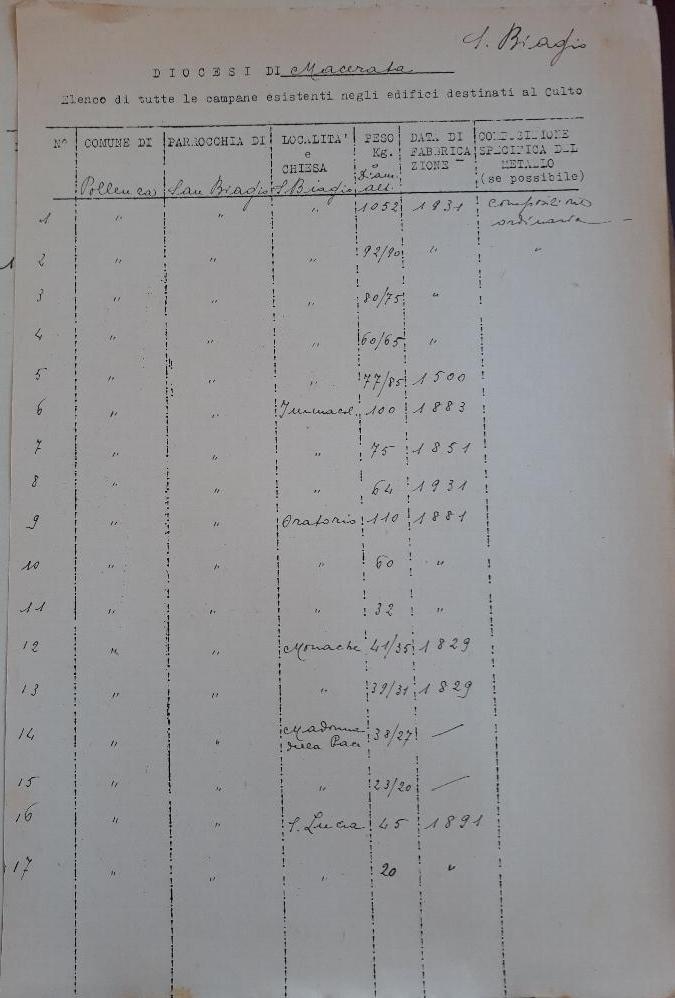 S. Biagio
DIOCESI DI Macerata
Elenco di tutte le campane esistenti negli edifici destinati al Culto
N° COMUNE DI PARROCCHIA DI LOCALITA' e CHIESA PESO Kg. o Diam. alt. DATA DI FABBRICAZIONE COMPOSIZIONE SPECIFICA DEL METALLO (se possibile)
Pollenza San Biagio S. Biagio
1 " " " 1052 1931 composizione ordinaria
2 " " " 92/90 " "
3 " " " 80/75 "
4 " " " 60/65 "
5 " " " 77/85 1500
6 " " Immacol. 100 1883
7 " " " 75 1851
8 " " " 64 1931
9 " " Oratorio 110 1881
10 " " " 60 "
11 " " " 32 "
12 " " Monache 41/35 1829
13 " " " 39/31 1829
14 " " Madonna della Pace 38/27 —
15 " " " 23/20 —
16 " " S. Lucia 45 1891
17 " " " 20 "